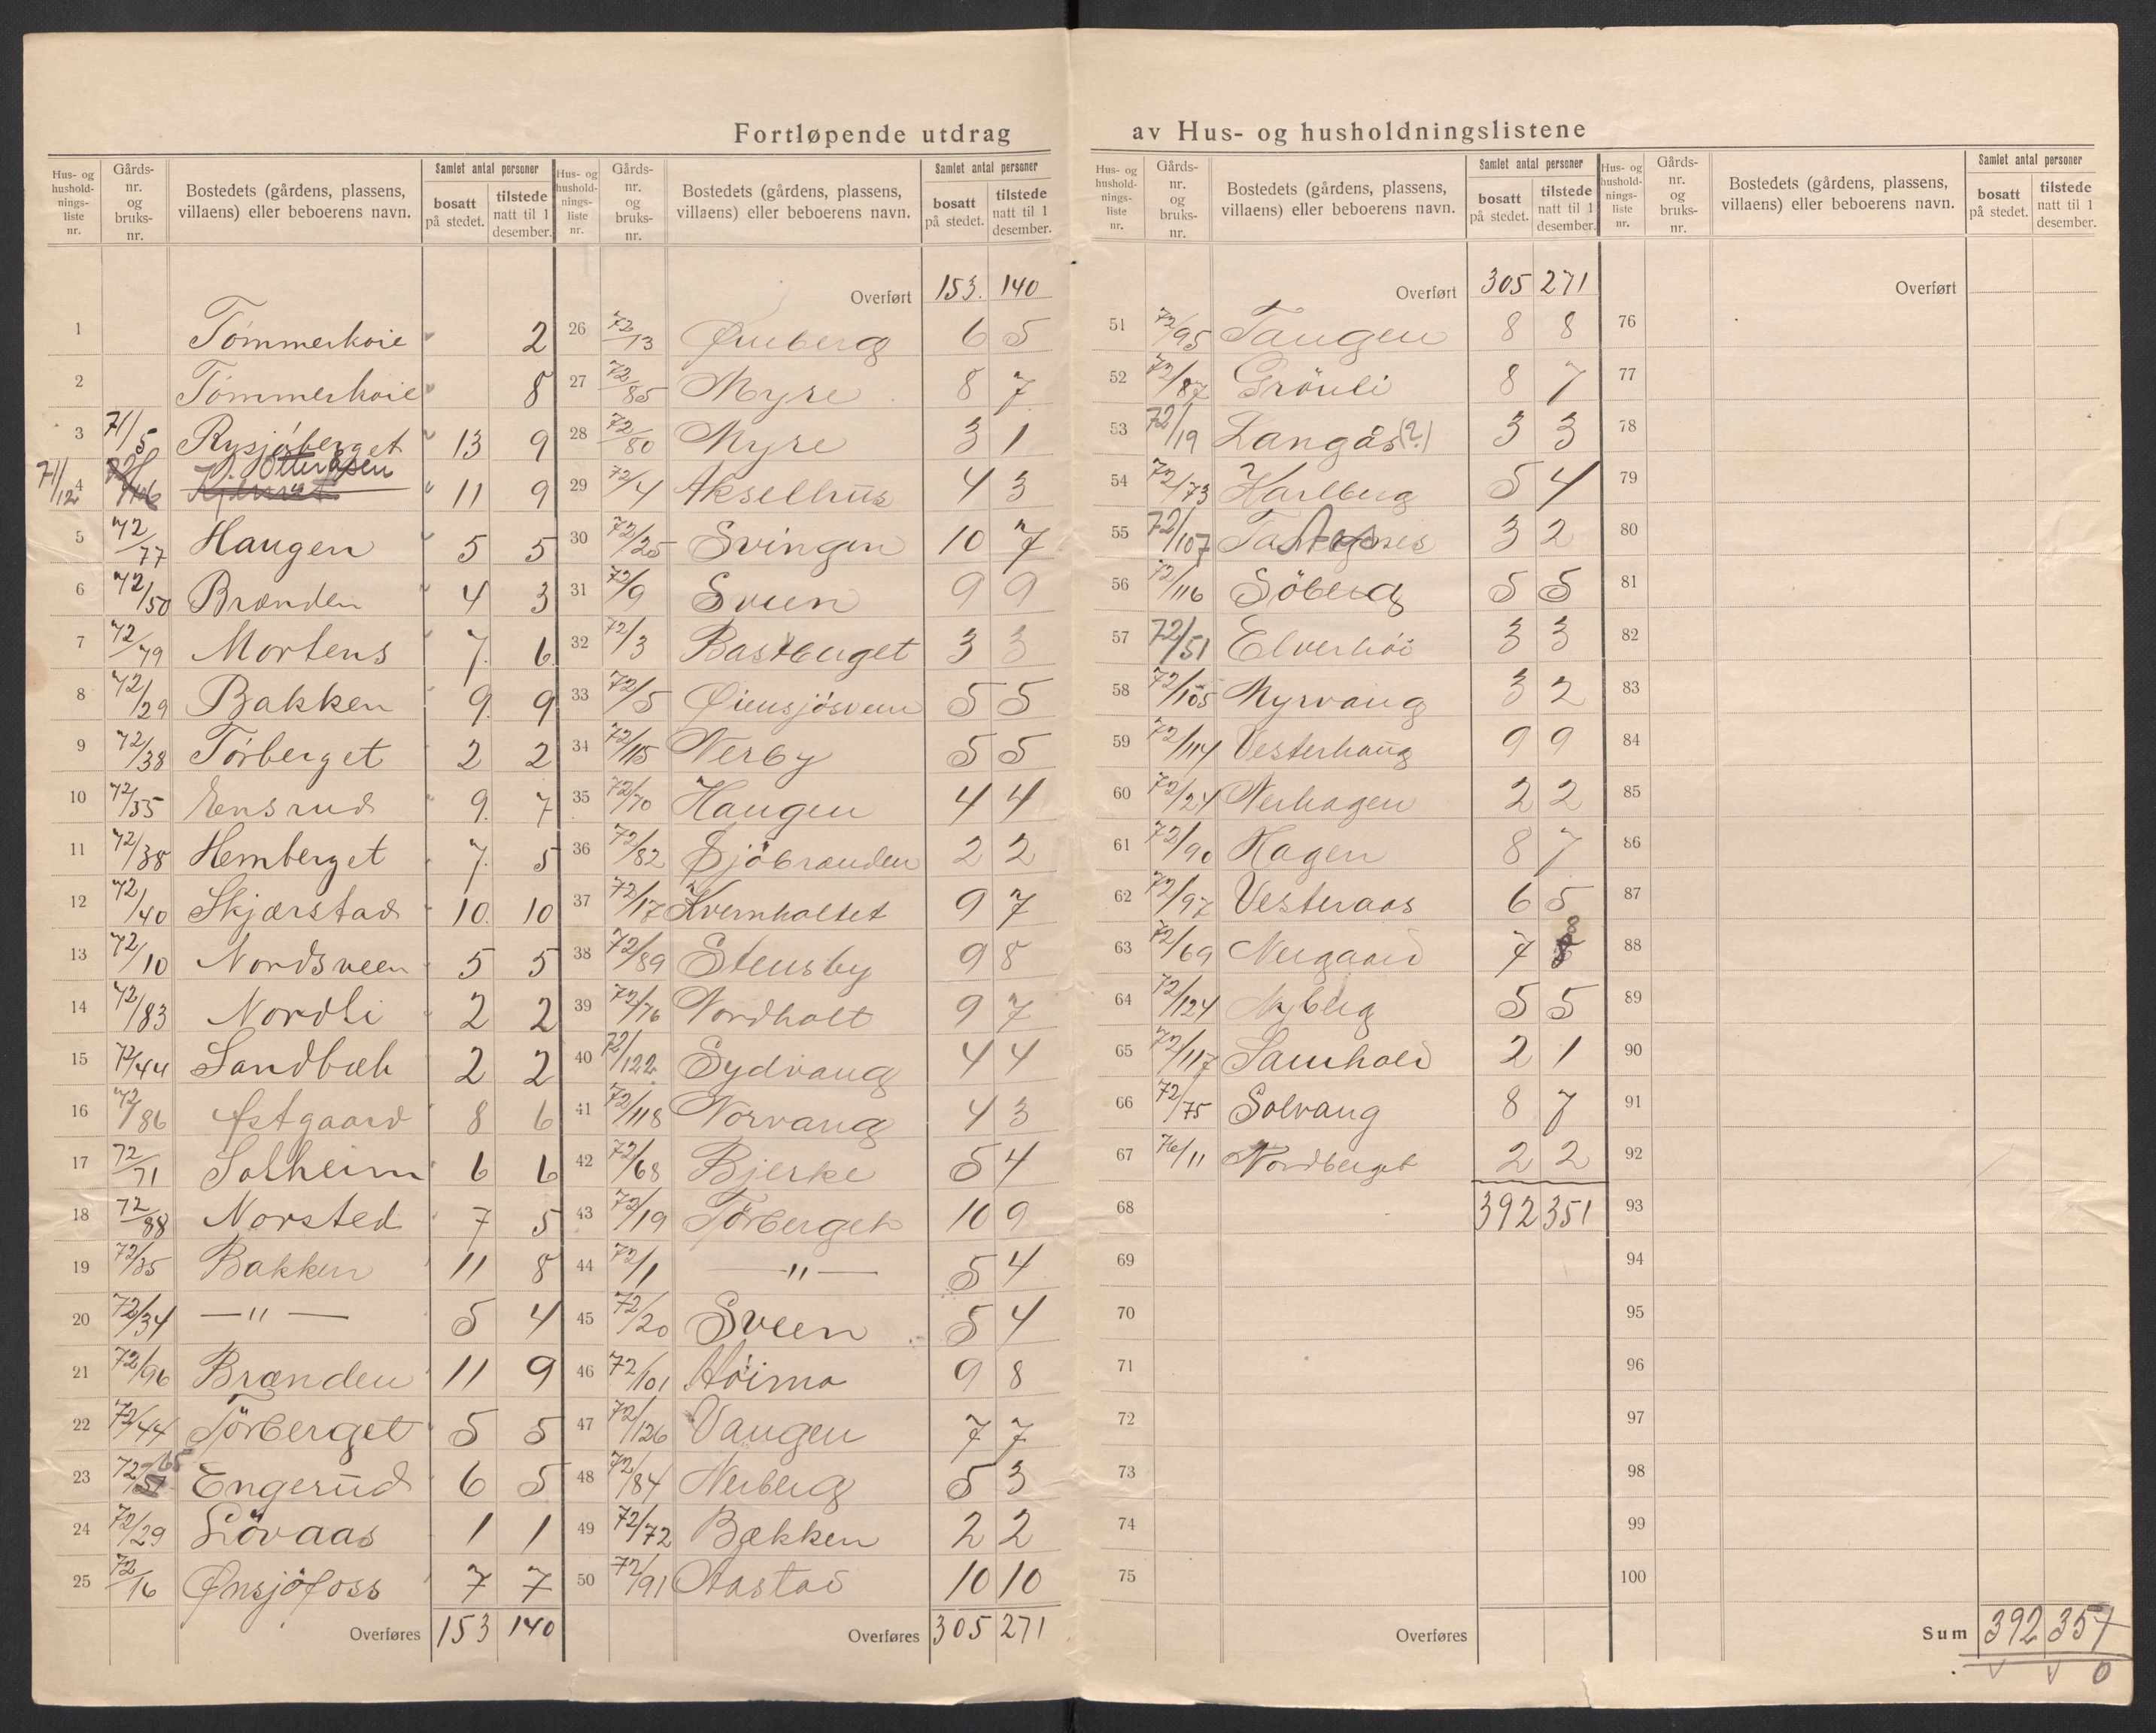 Fortløpende utdrag av Hus- og husholdningslistene
Hus- og husholdnings-liste nr. | Gårds-nr. og bruks-nr. | Bostedets (gårdens, plassens, villaens) eller beboerens navn. | Samlet antal personer bosatt på stedet. | tilstede natt til 1 desember.
1 Tømmerkoie " 2
2 Tømmerkoie " 8
3 71/50 Rysjøberget 13 9
4 71/12 Ottersen 11 9
5 72/77 Haugen 5 5
6 72/50 Brænden 4 3
7 72/79 Mortens 7 6
8 72/29 Bakken 9 9
9 72/38 Tørberget 2 2
10 72/55 Ensrud 9 7
11 72/38 Hemberget 7 5
12 72/40 Skjærstad 10 10
13 72/10 Nordsveen 5 5
14 72/83 Nordli 2 2
15 72/44 Sandbæk 2 2
16 72/86 Østgaard 8 6
17 72/71 Solheim 6 6
18 72/88 Norsted 7 5
19 72/35 Bakken 11 8
20 72/34 —"— 5 4
21 72/96 Brænden 11 9
22 72/44 Törberget 5 5
23 72/65 Engerud 6 5
24 72/29 Lövaas 1 1
25 72/16 Ønsjöfoss 7 7
Overføres 153 140
Hus- og husholdnings-liste nr. | Gårds-nr. og bruks-nr. | Bostedets (gårdens, plassens, villaens) eller beboerens navn. | Samlet antal personer bosatt på stedet. | tilstede natt til 1 desember.
Overført 153. 140
26 72/13 6 5
27 72/85 Myre 8 7
28 72/80 Myre 3 1
29 72/4 Akselhus 4 3
30 72/25 Svingen 10 7
31 72/9 Sveen 9 9
32 72/3 Bastberget 3 3
33 72/5 Øiensjøsveen 5 5
34 72/115 Nerby 5 5
35 72/70 Haugen 4 4
36 72/82 Sjöbrænden 2 2
37 72/17 Kvernholtet 9 7
38 72/89 Stensby 9 8
39 72/76 Nordholt 9 7
40 72/122 Sydvang 4 4
41 72/118 Norvang 4 3
42 72/68 Bjerke 5 4
43 72/19 Törberget 10 9
44 72/1 —"— 5 4
45 72/20 Sveen 5 4
46 72/101 Höimo 9 8
47 72/126 Vangen 7 7
48 72/84 Nerberg 5 3
49 72/72 Bækken 2 2
50 72/91 Aastad 10 10
Overføres 305 271
Hus- og husholdnings-liste nr. | Gårds-nr. og bruks-nr. | Bostedets (gårdens, plassens, villaens) eller beboerens navn. | Samlet antal personer bosatt på stedet. | tilstede natt til 1 desember.
Overført 305 271
51 72/95 Tangen 8 8
52 72/87 Grönli 8 7
53 72/19 Langås (?) 3 3
54 72/73 Karlberg 5 4
55 72/107 3 2
56 72/116 Söberg 5 5
57 72/51 Elverhöi 3 3
58 72/105 Myrvang 3 2
59 72/114 Vesterhaug 9 9
60 72/24 Nerhagen 2 2
61 72/90 Hagen 8 7
62 72/97 Vesteraas 6 5
63 72/69 Neugaard 7 8
64 72/124 Nyberg 5 5
65 72/117 Samhold 2 1
66 72/75 Solvang 8 7
67 76/11 Nordberget 2 2
68 392 351
69
70
71
72
73
74
75
Overføres
Hus- og husholdnings-liste nr. | Gårds-nr. og bruks-nr. | Bostedets (gårdens, plassens, villaens) eller beboerens navn. | Samlet antal personer bosatt på stedet. | tilstede natt til 1 desember.
Overført
76
77
78
79
80
81
82
83
84
85
86
87
88
89
90
91
92
93
94
95
96
97
98
99
100
Sum 392 357
0